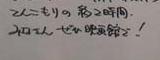 てんこもりの約2時間.
みなさん ぜひ映画館で!